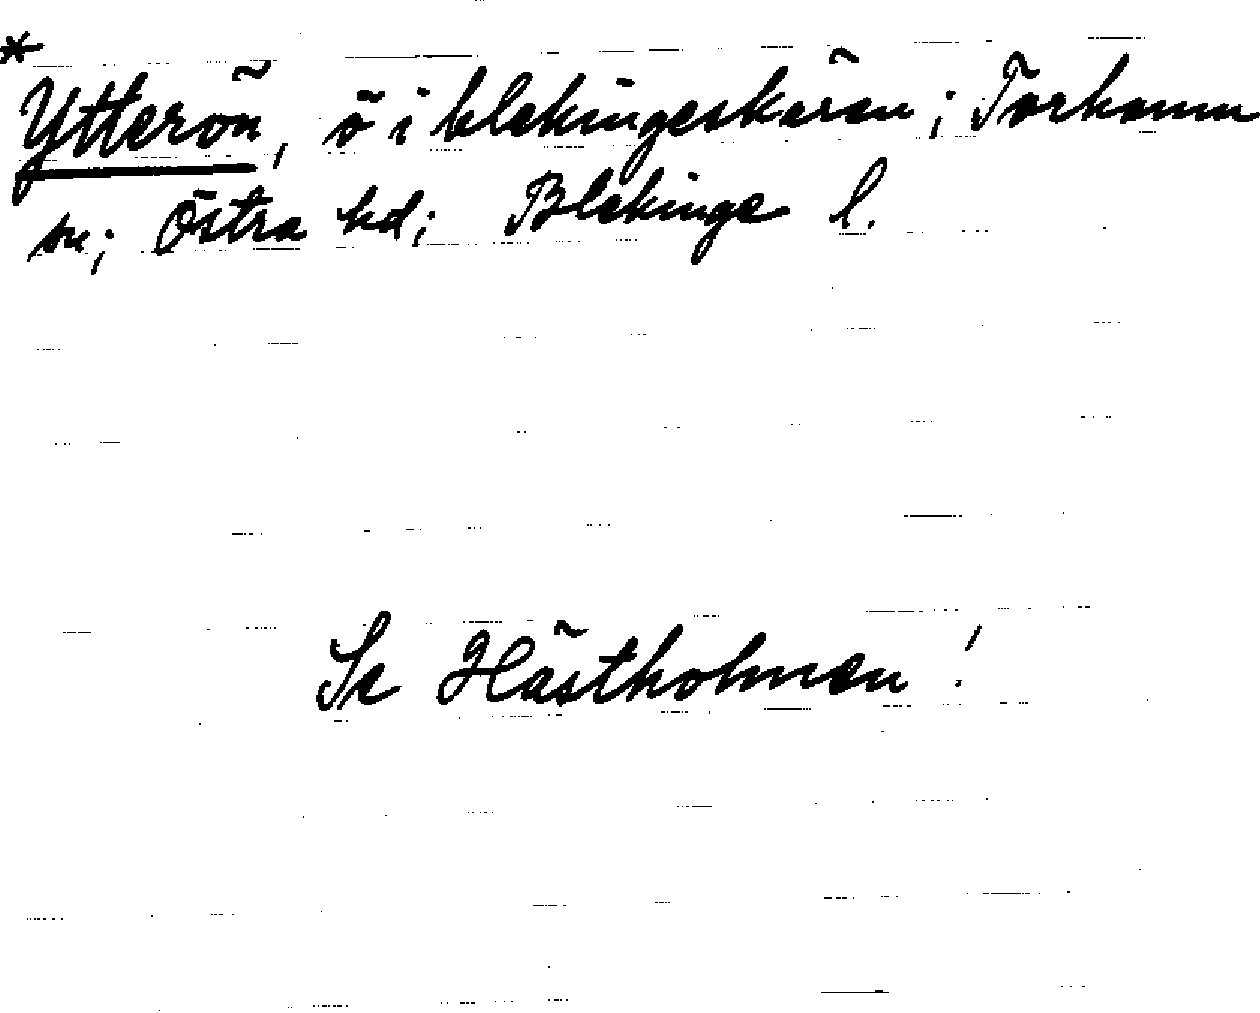 *
Ytterön, ö i blekingeskären; Torhamn
sn; Östra hd; Blekinge l.
Se Hästholmen!